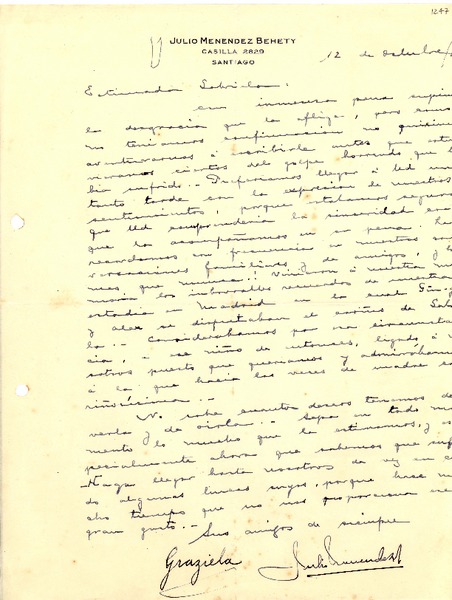 1247
JULIO MENENDEZ BEHETY
CASILLA 2829
SANTIAGO
12 de Octubre/
Estimada Gabriela:
con inmensa pena supimos
la desgracia que la aflige, pero como
no teníamos confirmación no quisimos
aventurarnos a escribirle antes que
ciertos del golpe horrendo que
bía sufrido.- Preferíamos llegar a Ud un
tanto tarde con la expresión de nuestros
sentimientos, porque estábamos seguros
que Ud comprendería la sinceridad con
que la acompañamos en su pena. La
recordamos con frecuencia en nuestras con
versaciones familiares y de amigos, y
mas, que nunca, vinieron a nuestra me
moria los imborrables recuerdos de nuestra
estadía en Madrid en la cual
y se disputaban el cariño de Gabrie
la.- Considerábamos por esa circunstan
cia, a ese niño de entonces, ligado a no
sotros puesto que queríamos y admirábamos
a la que hacía las veces de madre ca
riñosísima.-
No sabe cuantos deseos tenemos de
verla y de oirla.- Sepa en todo mo
mento lo mucho que la estimamos, y es
pecialmente ahora que sabemos que sufre
-Haga llegar hasta nosotros de vez en cuan
do algunas líneas suyas, porque hace mu
cho tiempo que no nos proporciona ese
gran gusto.-
Sus amigos de siempre
Graziela Julio Menendez B